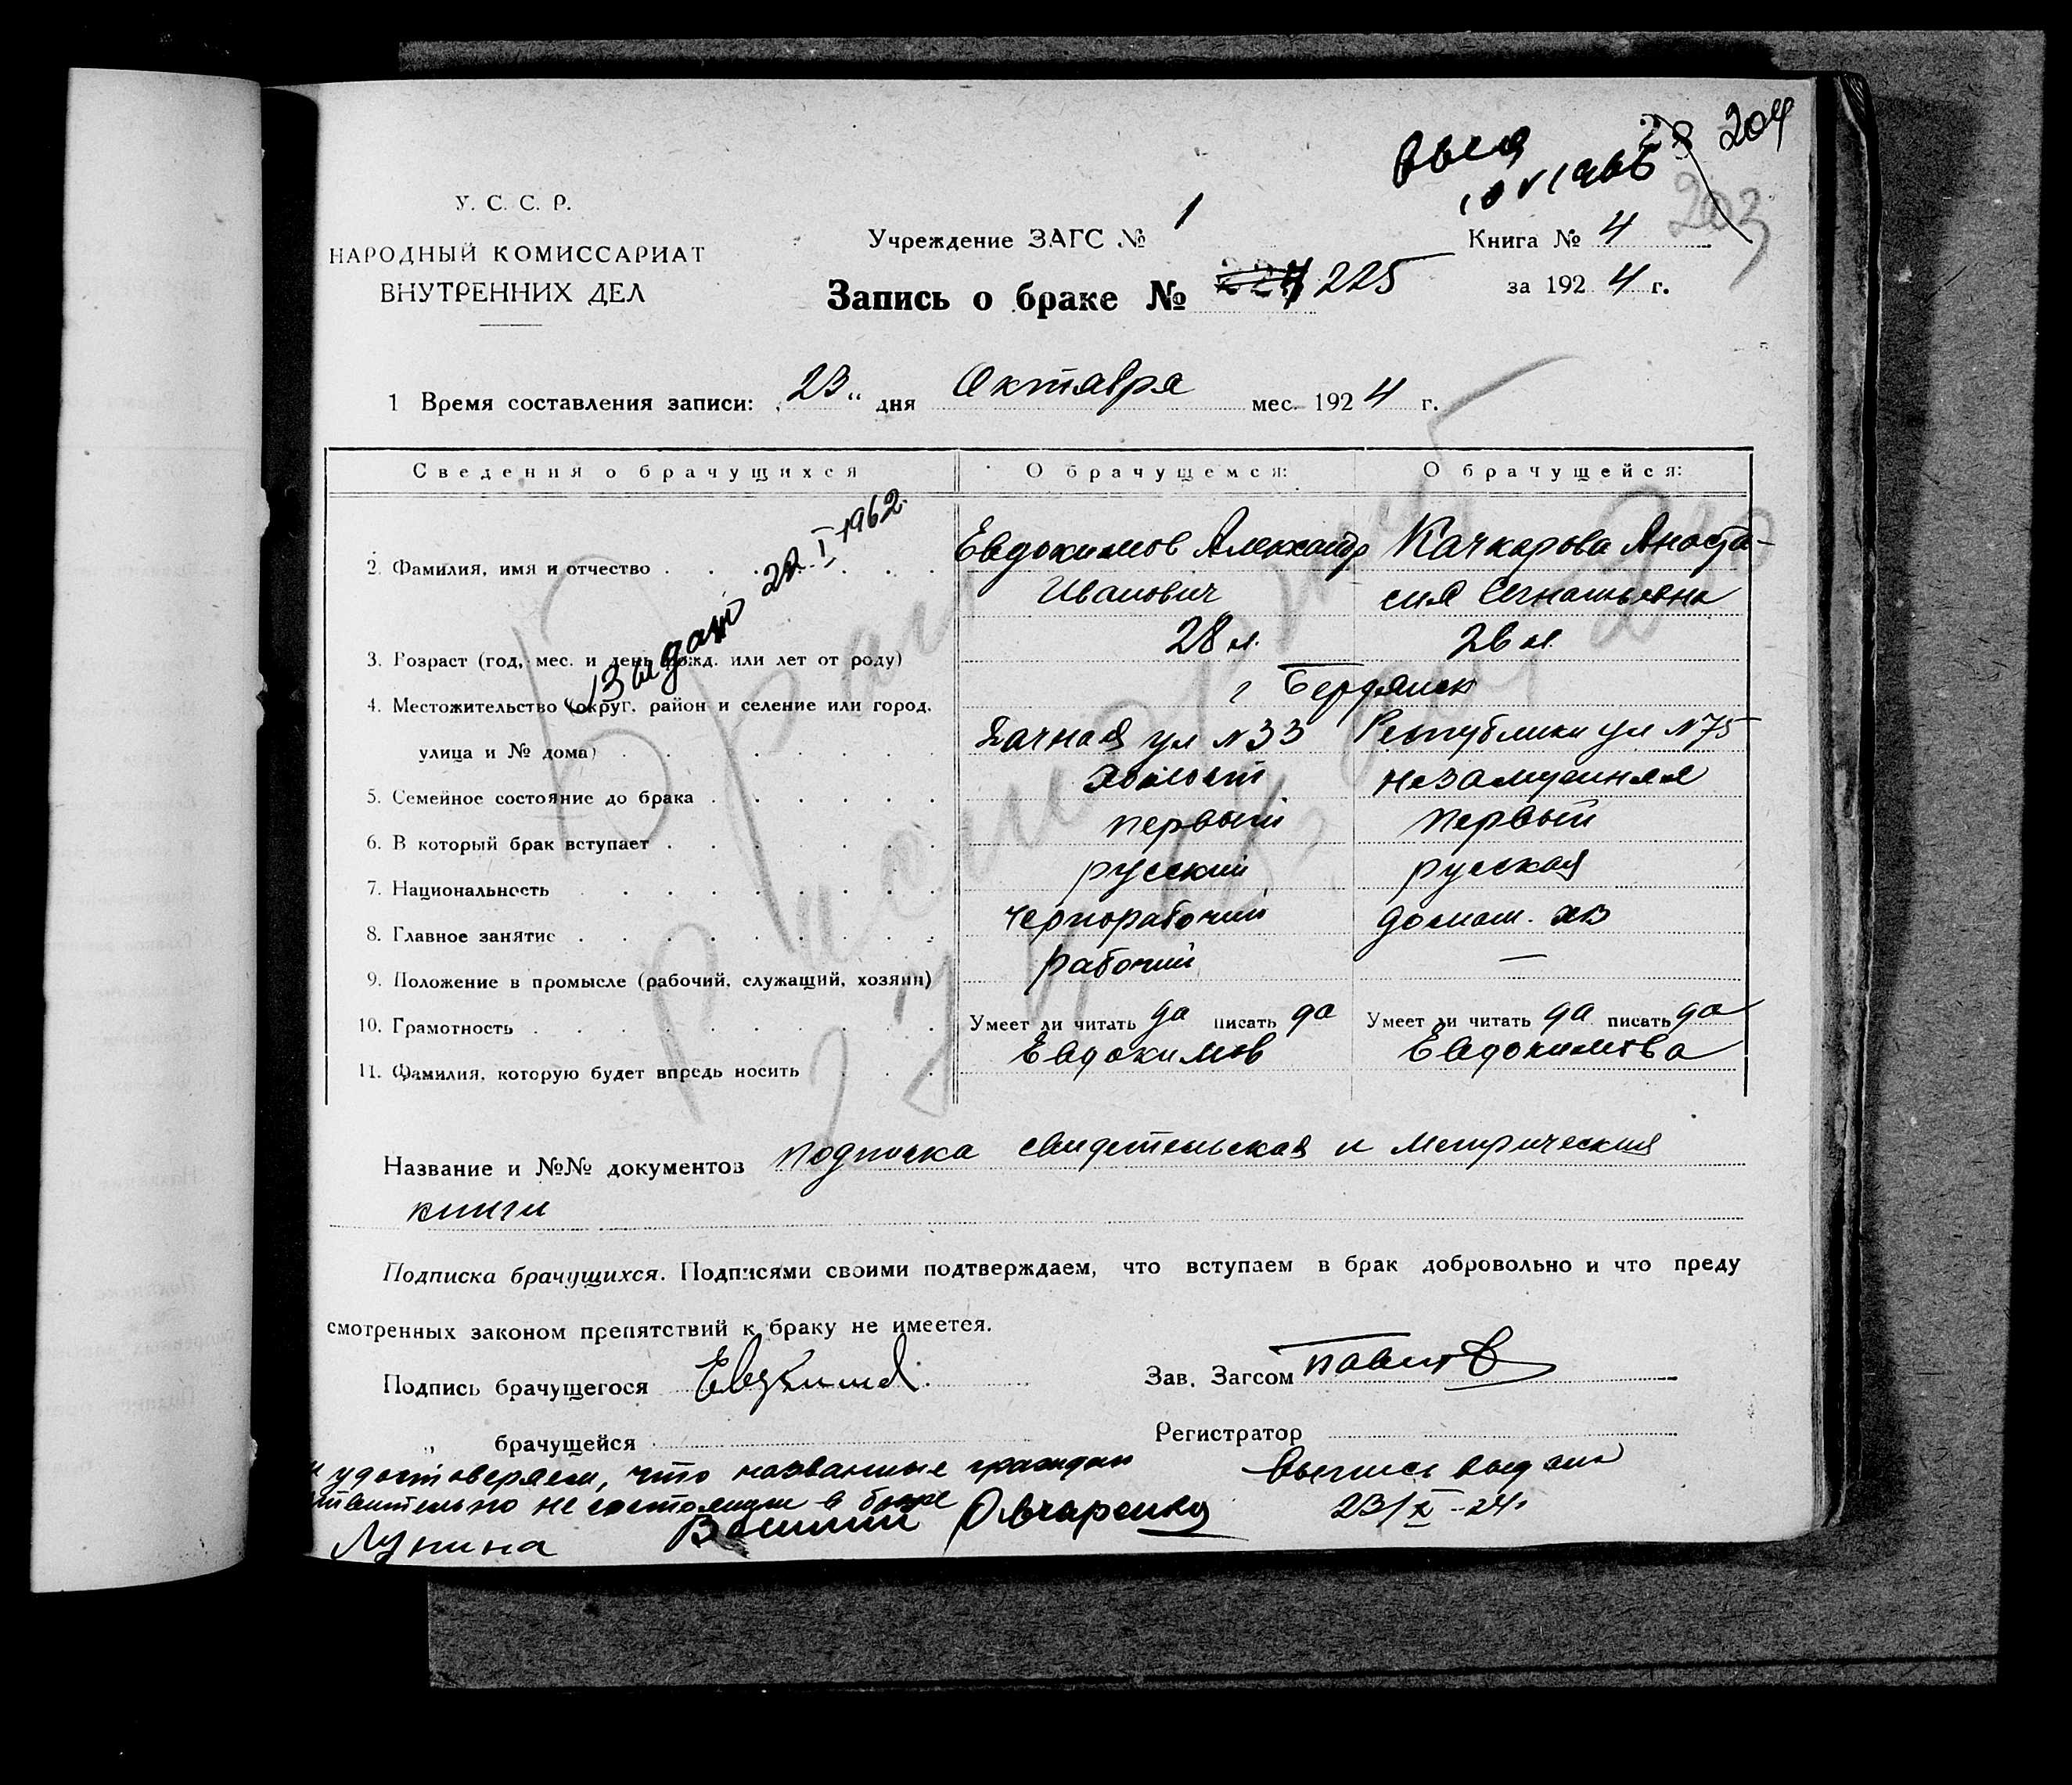 204
203
10 VI 1966
У. С. С. Р.
НАРОДНЫЙ КОМИССАРИАТ
ВНУТРЕННИХ ДЕЛ
Учреждение ЗАГС № 1
Запись о браке № 224 225
Книга № 4
за 1924 г.
1 Время составления записи: "23" дня Октября мес. 1924 г.
Сведения о брачущихся О брачущемся: О брачущейся:
2. Фамилия, имя и отчество Евдокимов Александр Качкарова Анаста-
Иванович сия Игнатьевна
3. Возраст (год, мес. и день рожд. или лет от роду) 28 л. 26 л.
Видано 22.I 1962.
4. Местожительство (округ. район и селение или город, г Бердянск
улица и № дома) Дачная ул N 33 Республики ул N 75
5. Семейное состояние до брака холост незамужняя
6. В который брак вступает первый первый
7. Национальность русский русская
8. Главное занятие чернорабочий домаш. хоз
9. Положение в промысле (рабочий, служащий, хозяин) рабочий —
10. Грамотность Умеет ли читать да писать да Умеет ли читать да писать да
11. Фамилия, которую будет впредь носить Евдокимов Евдокимова
Брак
Название и №№ документов подписка свидетельская и метрическия
книги
Подписка брачущихся. Подписями своими подтверждаем, что вступаем в брак добровольно и что преду
смотренных законом препятствий к браку не имеется.
Подпись брачущегося
Зав. Загсом
" брачущейся
Регистратор
удостоверяем, что названные граждан
ствительно не состояли в браке
Лунина Овчаренко
Выпись выдана
23/X-24